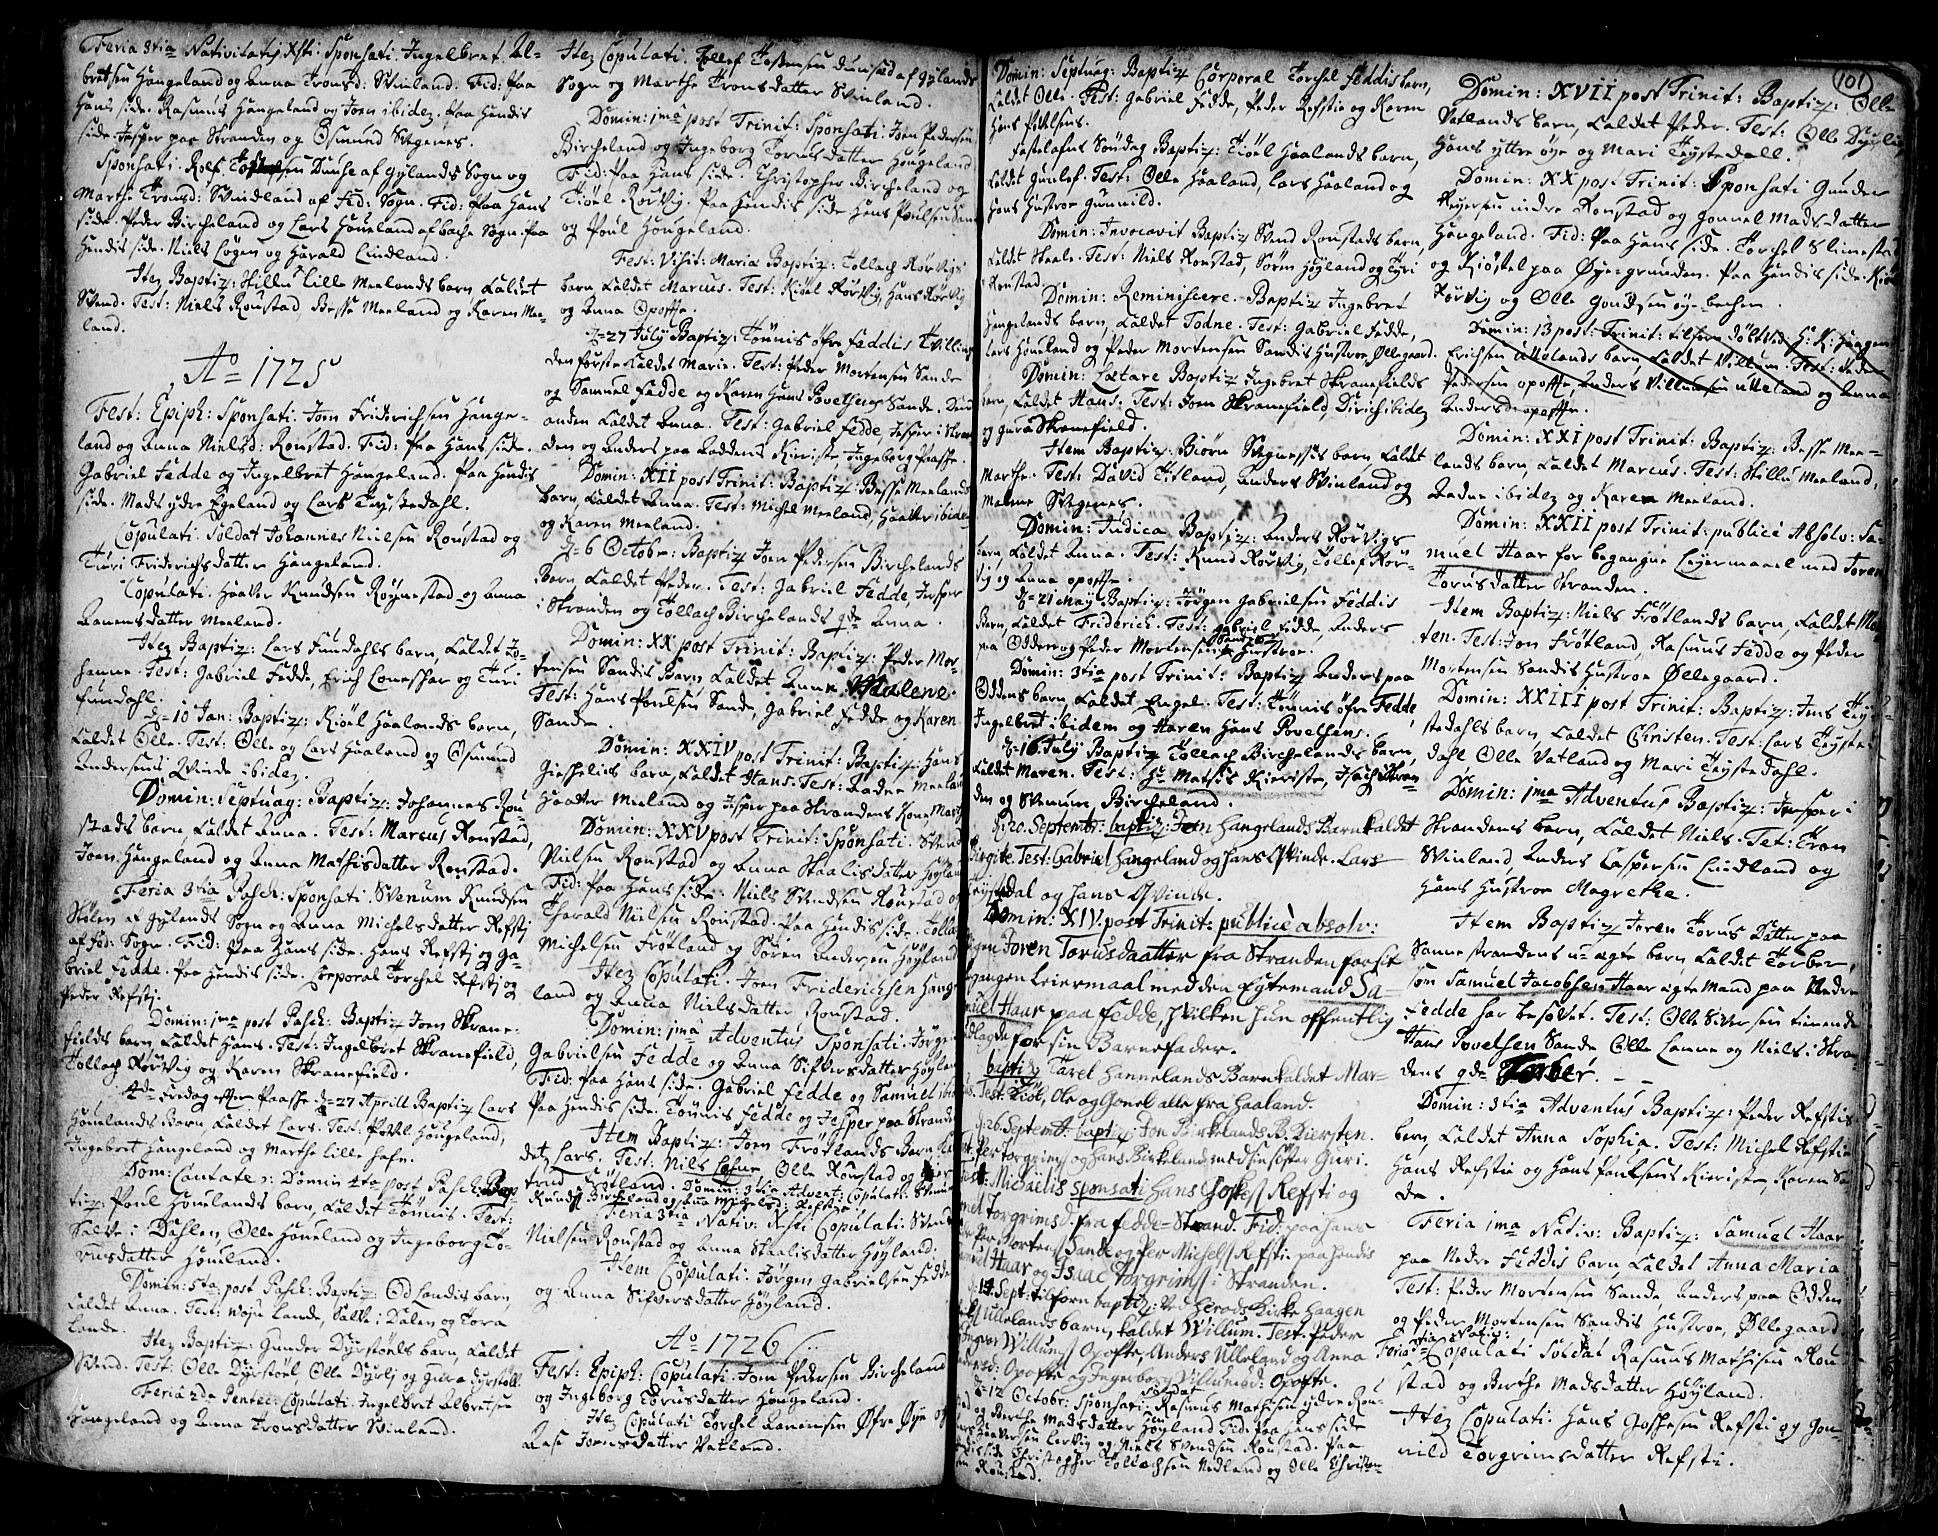 Feria 3tia Nativitatis Xsti: Sponsati. Ingelbret Al-
bretsen Hangeland og Anna Tronsd: Svinland. Fid: paa
hans side. Rasmus Hangeland og Joen ibidez. paa hendis
side. Jesper paa Stranden og Osmund Stegenes.
Sponsati. Rolf Tostensen Dunse af Gylands Sogn og
Marthe Tronsd: Svindland af Fid: Sogn. Fid: paa hans
side. Peder Bircheland og Lars Houeland af bache Sogn. paa
hendis side. Niels Logen og Harald Lindland.
Itez Baptiz: Hillu Lille Meelands barn kaldet
Svend. Test: Niels Ronstad, Besse Meeland og Karen Mee-
land.
Ao 1725
Fest: Epiph: Sponsati. Joen Friderichsen Hange-
land og Anna Nielsd: Ronstad. Fid: paa Hans side.
Gabriel Fedde og Ingelbret Hangeland. Paa hendis
side. Mads ydre Egeland og Lars Teystedahl.
Copulati. Soldat Johannes Nielsen Ronstad og
Turi Friderichsdatter Hangeland.
Copulati. Haaver Knudsen Røynestad og Anna
Aanensdatter Meeland.
Itez Baptiz: Lars Fundahls barn, kaldet Jo-
hanne. Test: Gabriel Fedde, Erich Loneschar og Turi
Fundahl.
D= 10 Jan: Baptiz: Kiøel Haalands barn,
kaldet Olle. Test: Olle og Lars Haaland og Osmund
Andersens Qvinde ibidez.
Domin: Septuag: Baptiz: Johannes Ron-
stads barn kaldet Anna. Test: Marcus Ronstad,
Joen Hangeland og Anna Mathisdatter Ronstad.
Feria 3tia Pasch: Sponsati. Svenum Knudsen
Stølen af Gylands Sogn og Anna Michelsdatter Refstj
af Fid: Sogn. Fid: paa Hans side. Hans Refstj og Ga-
briel Fedde. Paa hendis side. Corporal Torchel Refstj og
Peder Refstj.
Domin: 1ma post Pasch: Baptiz Joen Skrane-
fields barn kaldet Hans. Test: Ingelbret Skranefield,
Tollach Rørvig og Karen Skranefield.
4de Fredag efter Paasche D= 27 Aprill Baptiz Lars
Houelands barn, kaldet Lars. Test: Povel Hougeland,
Ingebret Hangeland og Marthe lille hafn.
Dom: Cantate: Domin 4ta post Pasch: Bap-
tiz: Poul Houelands barn, kaldet Tønnis. Test:
Salve i Dahlen, Olle Houeland og Ingeborg To-
rusdatter Houeland.
Domin: 5ta post Pasch: Baptiz: Od Landis barn,
kaldet Anna. Test: Lande, Salve i Dalen og Tora
Lande.
Itez Baptiz: Gunder Dyrstøels barn, kaldet
Svend. Test: Olle Dyrstøel, Olle Dyrlj og Guroe Dyrstøll.
Feria 2da Pentec: Copulati. Ingelbret Albretsen
Hangeland og Anna Tronsdatter Svinland.
Itez Copulati. Rollef Tostensen Dunsæd af Gylands
Sogn og Marthe Tronsdatter Svinland.
Domin: 1ma post Trinit: Sponsati. Joen Pedersen
Bircheland og Ingeborg Torusdatter Hougeland
Fid: paa Hans side. Christopher Bircheland og
Kiøel Rørvig. Paa Hendis side Hans Poulsen Sande
og Poul Hougeland.
Fest: Visit: Mariæ Baptiz: Tollach Rørvigs
barn kaldet Marcus. Test: Kiøel Rørvig, Hans Rørvig
og Anna Opofte.
D= 27 July Baptiz: Tønnis Øfre Feddis Tvillinger
den første kaldet Marie. Test: Peder Mortensen Sande
og Samuel Fedde og Karen Hans Povelsens Sande. Den
anden kaldet Anna. Test: Gabriel Fedde, Jesper i Stran-
den og Anders paa Oddens Kieriste, Ingeborg Paasche.
Domin: XII post Trinit: Baptiz: Besse Meelands
barn, kaldet Anna. Test: Michel Meeland, Haaver ibidem
og Karen Meeland.
D= 6 Octobr: Baptiz Joen Pedersen Birchelands
barn kaldet Peder. Test: Gabriel Fedde, Jesper
i Stranden og Tollach Birchelands qde Anna.
Domin: XX post Trinit: Baptiz: Peder Mor-
tensen Sandis barn kaldet Anna Malene.
Test: Hans Povelsen Sande, Gabriel Fedde og Karen
Sande.
Domin: XXIV post Trinit: Baptiz: Hans
barn, kaldet Hans. Test: Aadne Meeland
Haaver Meeland og Jesper paa Strandens Kone Marthe
Domin: XXV post Trinit: Sponsati. Svend
Nielsen Ronstad og Anna Staalisdatter Høyland
Fid: paa Hans side. Niels Svendsen Ronstad og
Tharald Nielsen Ronstad. Paa Hendis side. Tollach
Michelsen Frøtland og Søren Andersen Høyland
Itez Copulati. Joen Friderichsen Hange-
land og Anna Nielsdatter Ronstad.
Domin: 1ma Adventus Sponsati. Jørgen
Gabrielsen Fedde og Anna Sifversdatter Høyland
Fid: paa Hans side. Gabriel Fedde og Samuel ibid:
Paa Hendis side. Tønnis Fedde og Jesper paa Stranden
Item Baptiz: Joen Frøtlands Barn kal-
det, Lars. Test: Nils Lofne, Olle Ronstad og Gier-
trud Frøtland. Domin: 3tia Advent: Copulati. Svenum
Knuds: Bircheland og Anna Michelsd: Refstie.
Feria 3tia Nativ: Xsti Copulati. Svend
Nielsen Ronstad og Anna Staalisdatter Høyland.
Item Copulati. Jørgen Gabrielsen Fedde
og Anna Sifversdatter Høyland.
Ao 1726
Fest: Epiph: Copulati. Joen Pedersen Bircheland
og Ingeborg Torusdatter Hougeland.
Itez Copulati Torchel Aanensen Øfre Øye og
Aase Joensdatter Vatland.
Domin: Septuag: Baptiz Corporal Torchel Feddis barn,
kaldet Olle. Test: Gabriel Fedde, Peder Refstie og Karen
Hans Povelsens.
Fastelafns Søndag Baptiz: Kiøel Haalands barn,
kaldet Gunlef. Test: Olle Haaland, Lars Haaland og
Hans Hustroe Gunnild.
Domin: Invocavit Baptiz Svend Ronstads barn,
kaldet Staale. Test: Niels Ronstad, Søren Høyland og Turi
Ronstad.
Domin: Reminiscere. Baptiz Ingebret
Hangelands barn, kaldet Todne. Test: Gabriel Fedde,
Lars Houeland og Peder Mortensen Sandis Hustroe Øllegaard.
Domin: Lætare Baptiz Ingebret Skranefields
barn, kaldet Hans. Test: Joen Skranefield, Dirich ibidez
og Gura Skranefield.
Item Baptiz: Biørn Stegnesses barn, kaldet
Marthe. Test: David Titland, Anders Svinland og
Malene Stegenes.
Domin: Judica Baptiz: Anders Rørvigs
barn, kaldet Anna. Test: Knud Rørvig, Tollef Rør-
vig og Anna Opofte.
D= 21 May Baptiz: Jørgen Gabrielsen Feddis
Barn, kaldet Friderich. Test: Gabriel Fedde, Anders
paa Odden og Peder Mortensen Sandis Hustroe.
Domin: 3tia post Trinit: Baptiz Anders paa
Oddens barn, kaldet Engel. Test: Tønnis Øfre Fedde,
Ingelbret ibidem og Karen Hans Povelsens.
D= 16 July Baptiz Tollach Birchelands barn,
kaldet Maren. Test: Hr Mathis Kieriste, Isach Stran-
den og Svenum Bircheland.
D: 20. Septembr: baptiz: Joen Hangelands Barn kaldet
Birgite. Test: Gabriel Hangeland og hans Qvinde. Lars
Teystdal og hans Qvinde.
Domin: XIV post Trinit: publicè absolv:
Pigen Joren Torusdaatter fra Stranden for be-
gangen Leiermaal med den Egtemand Sa-
muel Haar paa Fedde, hvilken hun offentlig
udlagde for sin Barnefader.
baptiz Tarel Hannelands Barn kaldet Mar-
Test: Kiøl, Ole og Gonel alle fra Haaland.
D: 26. Septemb: baptiz Jon Birkelands B. Kiersten.
Test: Per Torgrims: og Hans Birkeland med sin Søster Guri.
Fest: Michaelis Sponsati Hans Refsti og
Torgrimsd. fra Fedde-Strand. Fid: paa hans
side Per Mortens: Sande og Per Michels: Refsti paa hendis
Samuel Haar og Isaac Torgrims: i Stranden.
D: 14. Sept: tilforn baptiz: ved Herods Kirke Haagen
Ullelands barn, kaldet Willum. Test: Peder
Willums: Opofte, Anders Ulleland og Anna
Opofte og Ingerborg Willumsd: Opofte.
D= 12 Octobr: Sponsati. Soldat Rasmus Mathisen ydre Ron-
stad og Berthe Madsdatter Høyland Fid: paa Hans side
Haaversen Lervig og Niels Svendsen Ronstad. Paa
Hendis side Christopher Tollachsen Medland og Olle Christen-
sen Ronstad.
101
Domin: XVII post Trinit: Baptiz: Olle
Vatlands barn, kaldet Peder. Test: Olle Dyrlj,
Hans yttre Øye og Mari Teystedall.
Domin: XX post Trinit: Sponsati Gunder
Reyersen nidre Ronstad og Gonnel Mads-datter
Hangeland. Fid: Paa Hans side. Torchel Slimestad
og Kiøstel paa Øye-grunden. Paa Hendis side. Kiøel
Rørvig og Olle Gondsen Øye-bechen.
Domin: 13 post: Trinit: tilforn døbt ved H: K: Haagen
Erichsen Ullelands barn, kaldet Villum. Test: Peder
Pedersen Opofte, Anders Villumsen Ulleland og Anna
Andersd: Opofte.
Domin: XXI post Trinit: Baptiz: Besse Mee-
lands barn, kaldet Marcus. Test: Hillu Meeland,
Aadne ibidez og Karen Meeland.
Domin: XXII post Trinit: publicè Absolv: Sa-
muel Haar for begangne Leyermaael med Joren
Torusdatter Stranden.
Item Baptiz: Niels Frøtlands barn, kaldet Mo-
ten. Test: Jon Frøtland, Rasmus Fedde og Peder
Mortensen Sandis Hustroe Øllegaard.
Domin: XXIII post Trinit: Baptiz: Jens Tey-
stedahls barn, kaldet Christen. Test: Lars Teyste-
dahl Olle Vatland og Mari Teystedahl.
Domin: 1ma Adventus Baptiz: Jesper i
Strandens barn, kaldet Niels. Tet: Tron
Svinland Anders Caspersen Lindland og
Hans Hustroe Magrethe.
Item Baptiz Joren Torus Datter paa
Sanne strandens u-ægte barn, kaldet Torber,
som Samuel Jacobsen Haar ægte Mand paa Nedre
Fedde har besofvet. Test: Olle Siversen tienende
Hans Povelsen Sande Olle Lonne og Niels i Stran-
dens qde Torber.
Domin: 3tia Adventus Baptiz: Peder Refstis
barn, kaldet Anna Sophia. Test: Michel Refstie
Hans Refstie og Hans Poulsens Kieriste, Karen San-
de.
Feria 1ma Nativ: Baptiz: Samuel Haar
paa Nedre Feddis barn, kaldet Anna Maria
Test: Peder Mortensen Sande, Anders paa Odden
og Peder Mortensen Sandis Hustroe, Øllegaard
Feria 3tia Nativ: Copulati Soldat Rasmus Mathisen Ron-
stad og Berthe Madsdatter Høyland.
Itez Copulati: Hans Refsti og Gon-
nild Torgrimsdatter Refsti.